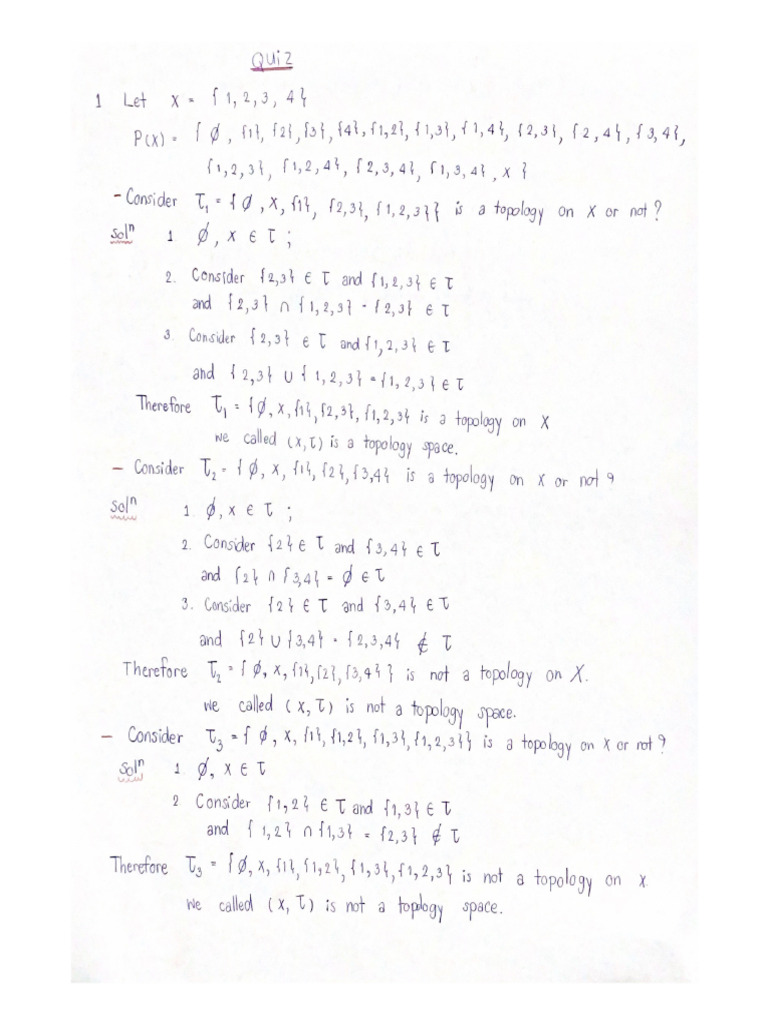 Quiz
1 Let X = {1,2,3,4}
P(X) = { ∅, {1}, {2}, {3}, {4}, {1,2}, {1,3}, {1,4}, {2,3}, {2,4}, {3,4},
{1,2,3}, {1,2,4}, {2,3,4}, {1,3,4}, X }
- Consider τ₁ = {∅, X, {1}, {2,3}, {1,2,3}} is a topology on X or not?
Solⁿ 1 ∅, X ∈ τ ;
2. Consider {2,3} ∈ τ and {1,2,3} ∈ τ
and {2,3} ∩ {1,2,3} = {2,3} ∈ τ
3. Consider {2,3} ∈ τ and {1,2,3} ∈ τ
and {2,3} ∪ {1,2,3} = {1,2,3} ∈ τ
Therefore τ₁ = {∅, X, {1}, {2,3}, {1,2,3} is a topology on X
we called (X,τ) is a topology space.
- Consider τ₂ = {∅, X, {1}, {2}, {3,4} is a topology on X or not ?
Solⁿ 1. ∅, X ∈ τ ;
2. Consider {2} ∈ τ and {3,4} ∈ τ
and {2} ∩ {3,4} = ∅ ∈ τ
3. Consider {2} ∈ τ and {3,4} ∈ τ
and {2} ∪ {3,4} = {2,3,4} ∉ τ
Therefore τ₂ = {∅, X, {1}, {2}, {3,4} } is not a topology on X.
we called (X, τ) is not a topology space.
- Consider τ₃ = { ∅, X, {1}, {1,2}, {1,3}, {1,2,3}} is a topology on X or not?
Solⁿ 1. ∅, X ∈ τ
2 Consider {1,2} ∈ τ and {1,3} ∈ τ
and {1,2} ∩ {1,3} = {2,3} ∉ τ
Therefore τ₃ = {∅, X, {1}, {1,2}, {1,3}, {1,2,3} is not a topology on X.
we called (X, τ) is not a topology space.